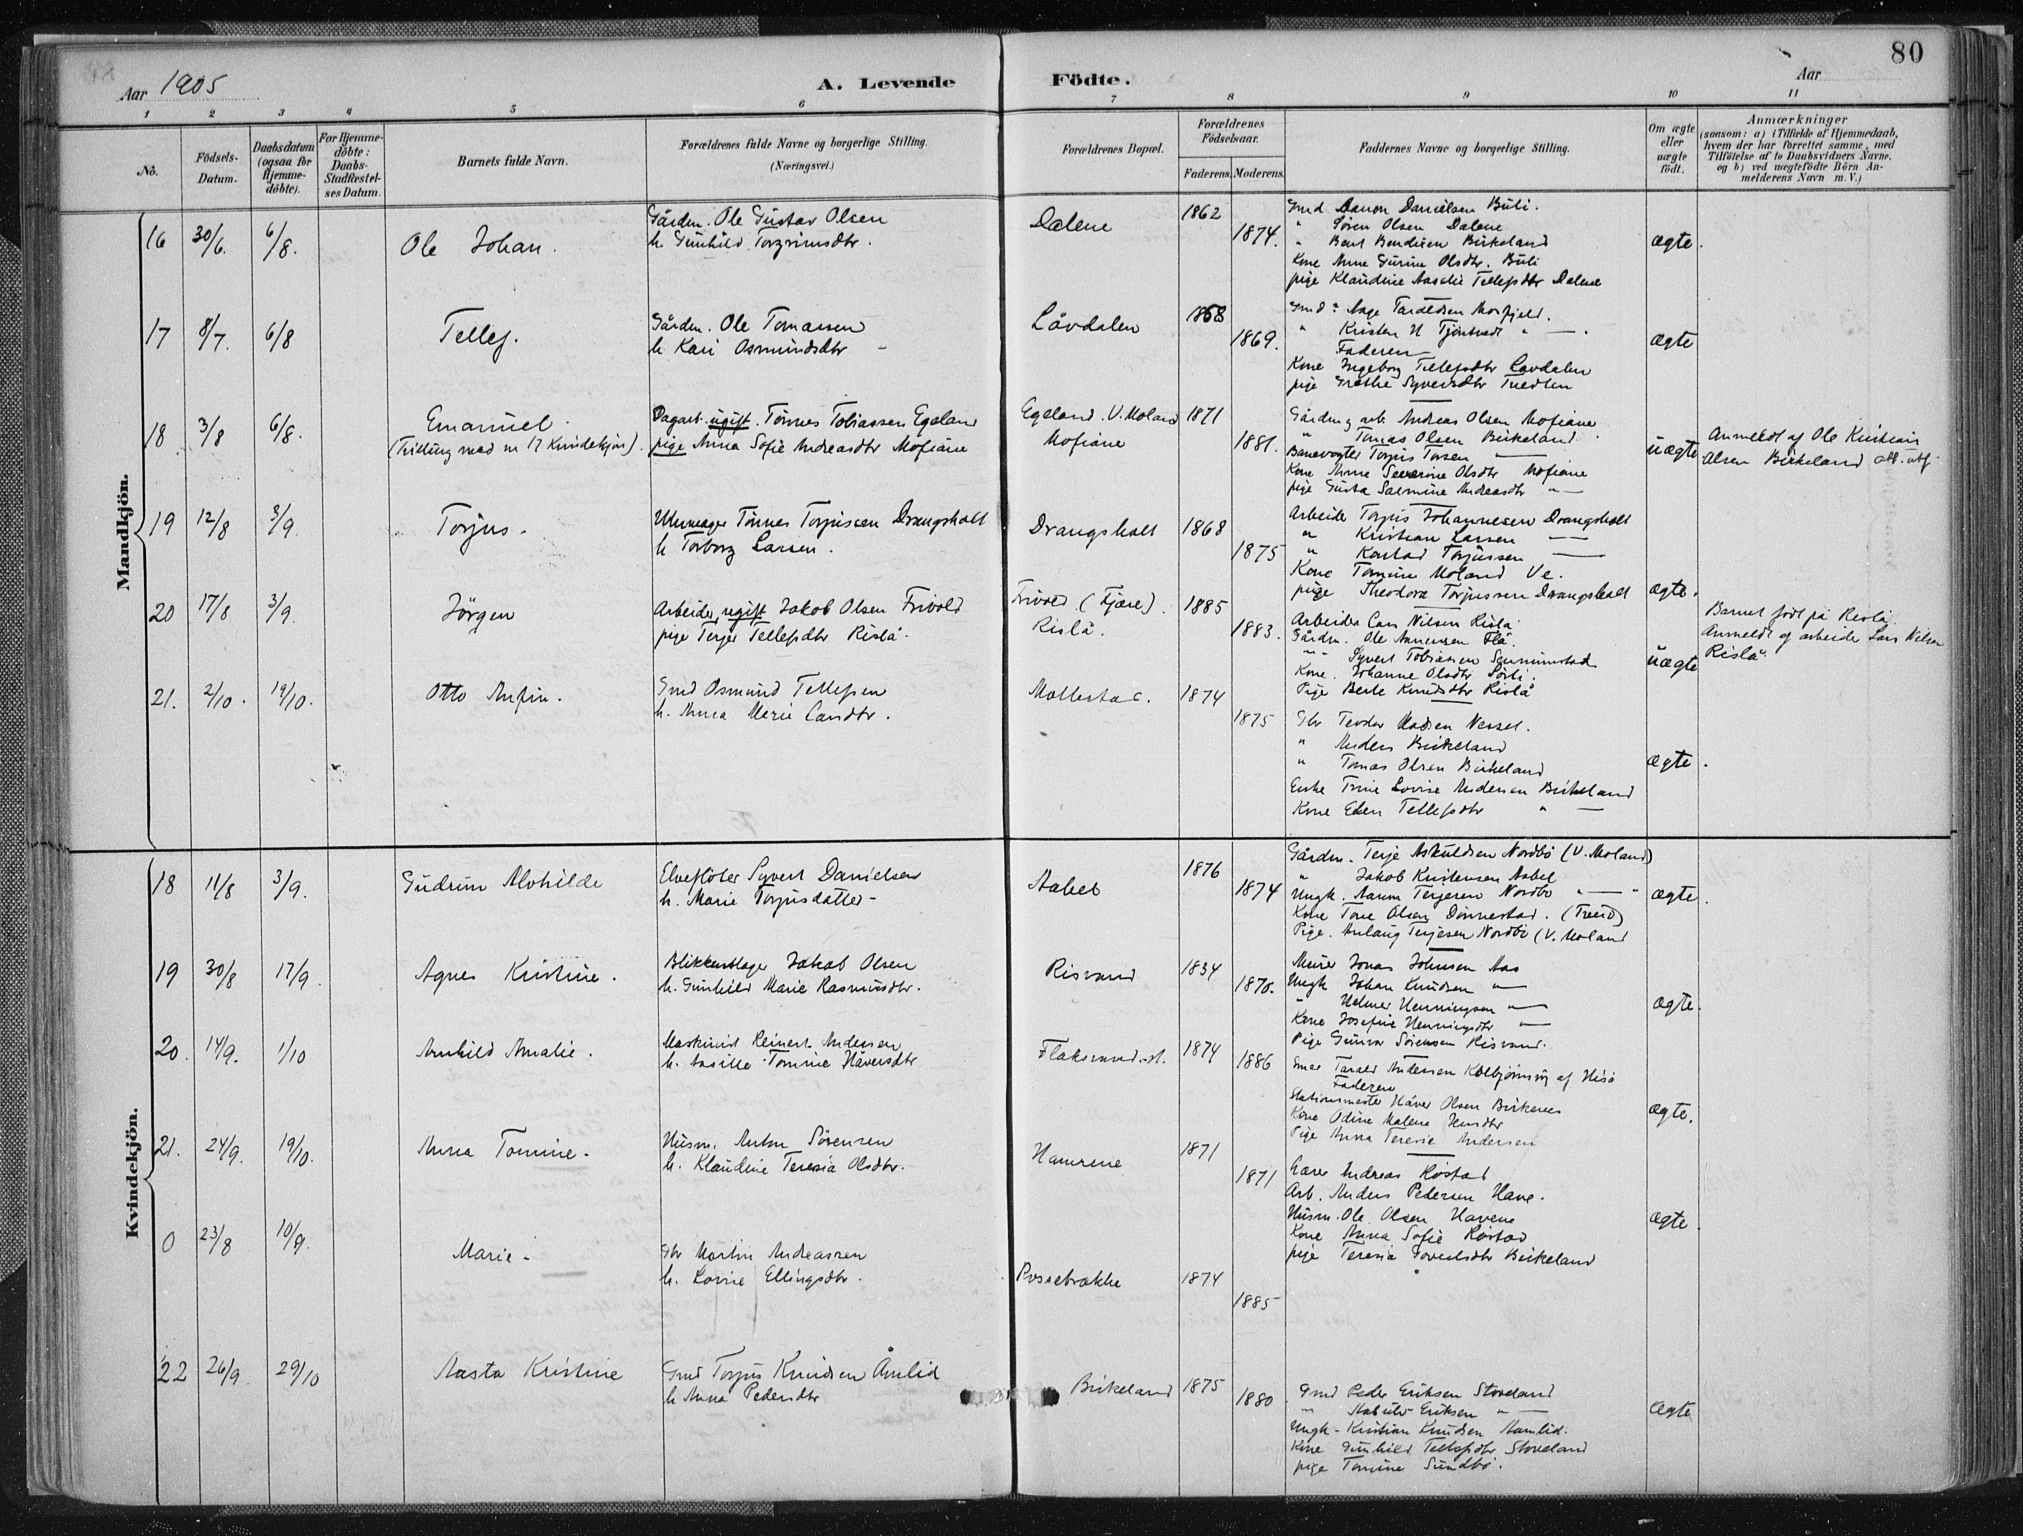 80
Aar 1905
A. Levende Födte.
Aar
1 2 3 4 5 6 7 8 9 10 11
No.
Födsels-Datum.
Daabsdatum (ogsaa for Hjemme-döbte).
For Hjemme-döbte: Daabs-Stadfæstel-ses Datum.
Barnets fulde Navn.
Forældrenes fulde Navne og borgerlige Stilling.
(Næringsvei.)
Forældrenes Bopæl.
Forældrenes Födselsaar.
Faderens. Moderens.
Faddernes Navne og borgerlige Stilling.
Om ægte eller uægte födt.
Anmærkninger
(saasom: a) i Tilfælde af Hjemmedaab,
hvem der har forrettet samme, med
Tilföielse af to Daabsvidners Navne,
og b) ved uægtefödte Börn An-
melderens Navn m. V.)
Mandkjön.
16 30/6. 6/8. Ole Johan.
Gårdm. Ole Gustav Olsen
h. Gunhild Torgrimsdtr.
Dalene 1862 1874.
Gmd Aanon Danielsen Buli.
" Sören Olsen Dalene
" Bent Bendixen Birkeland
Kone Anne Gurine Olsdtr. Buli
pige Klaudine Aasalie Tellefsdtr Dalene
ægte.
17 8/7. 6/8 Tellef.
Gårdm. Ole Tomassen
h. Kari Osmundsdtr
Låvdalen 1868 1869.
Gmd: Aage Taraldsen Mosfjeld.
" Kristen N Tjöntvedt " — .
Faderen
Kone Ingeborg Tellefsdtr Lavdalen
pige Grethe Syversdtr
ægte
18 3/8 6/8. Emanuel.
(Tvilling med nr 17 Kvindekjön).
Dagarb. ugift. Tönnes Tobiassen Egeland
pige Anna Sofie Andreasdtr Mofiane
Egeland V. Moland
Mofiane
1871 1881.
Gårdm. & arb. Andreas Olsen Mofiane
" Tomas Olsen Birkeland
Banevogter Torjus Torsen —
Kone Anne Severine Olsdtr Mofiane
pige Gusta Salmine Andreasdtr " —
uægte
Anmeldt af Ole Kristian
Olsen Birkeland
19 12/8 3/9. Torjus.
Urmager Tönnes Torjussen Drangsholt
h Torborg Larsen.
Drangsholt 1868 1875
Arbeider Torjus Johannesen Drangsholt
" Kristian Larsen —
" Konrad Torjussen —
Kone Tomine Moland Ve.
pige Theodora Torjussen Drangsholt
ægte.
20 17/8 3/9. Jörgen
Arbeider, ugift Jakob Olsen Frivold
pige Terjer Tellefsdtr Rislå.
Frivold (Fjære).
Rislå.
1885 1883.
Arbeider Lars Nilsen Rislå
Gårdm. Ole Aanensen Flå.
" Syvert Tobiassen Senumstad
Kone. Johanne Olsdtr Sörli.
Pige Berte Knudsdtr Rislå
uægte
Barnet födt på Rislå.
Anmeldt af arbeider Lars Nilsen
Rislå.
21. 2/10. 19/10. Otto Anfin.
Gmd Osmund Tellefsen
h. Anna Marie Larsdtr.
Mollestad. 1874 1875
Gbr Teodor Madsen Nersel.
" Anders Birkeland
" Tomas Olsen Birkeland
Enke Trine Lovise Andersen Birkeland
Kone Ellen Tellefsdtr " —
ægte.
Kvindekjön.
18 11/8 3/9. Gudrun Alvhilde
Elveflöter Syvert Danielsen
h. Marie Torjusdatter-
Aabel 1876 1874
Gårdm. Terje Askuldsen Nordbö (V. Moland)
" Jakob Kristensen Aabel
Ungk. Aanon Terjesen Nordbö " — "
Kone Tone Olsen Dönnestad. (Tveid)
Pige. Anlaug Terjesen Nordbö (V. Moland
ægte.
19 30/8 17/9. Agnes Kristine.
Blikkenslager Jakob Olsen
h. Gunhild Marie Rasmusdtr.
Risvand 1834 1870.
Murer Jonas Johnsen Aas
Ungk Johan Knudsen " —
" Helmer Henningsen " —
Kone Josefine Henningsdtr —
Pige Gunvor Sörensen Risvand.
ægte.
20. 14/9. 1/10 Arnhild Amalie.
Maskinist Reinert Andersen
h. Aasille Tomine Håversdtr
Flaksvand st. 1874 1886
Gmd Tarald Andersen Kolbjörnsvig af Hisö
Faderen
Stationsmester Håver Olsen Birkenes
Kone Odine Malene
Pige Anna Teresie Andersen
ægte.
21. 24/9. 19/10. Anna Tomine.
Husm. Anton Sörensen
h. Klaudine Teresia Olsdtr.
Hamrene 1871 1871
Lærer Andreas Röstad
Arb. Anders Pedersen Have.
Husm. Ole Olsen Havene
Kone Anna Sofie Röstad
pige Teresia Birkeland
ægte.
0 23/8 10/9. Marie.
Gbr Martin Andreassen
h. Lovise Ellingsdtr.
Possebrække 1874 1885
22 26/9. 29/10 Aasta Kristine
Gmd Torjus Knudsen Åmlid
h Anna Pedersdtr
Birkeland 1875 1880
Gmd Peder Eriksen Stoveland
" Eriksen " —
Ungk- Kristian Knudsen Aamlid.
Kone Gunhild Tellefsdtr Stoveland
pige Tomine Sundbö.
ægte